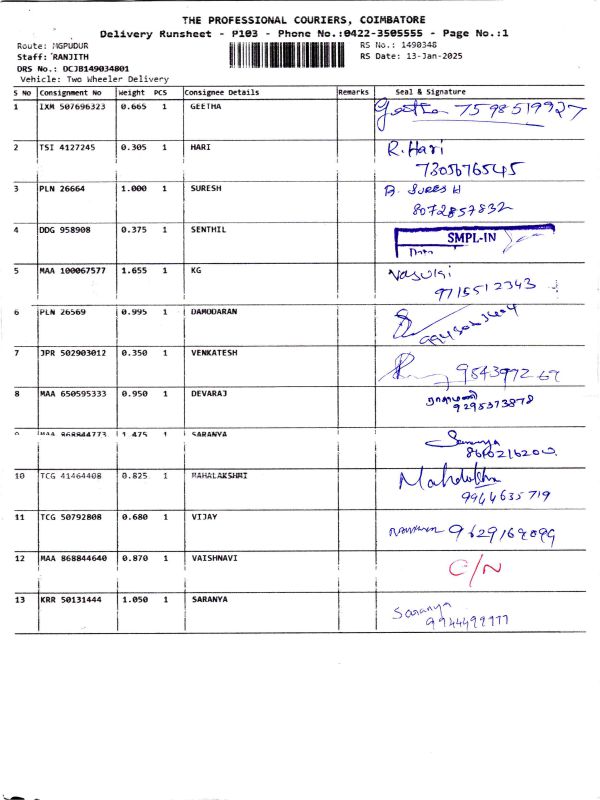 THE PROFESSIONAL COURIERS, COIMBATORE
Delivery Runsheet - P103 - Phone No.:0422-3505555 - Page No.:1
Route: MGPUDUR
RS No.: 1490348
Staff: RANJITH
RS Date: 13-Jan-2025
DRS No.: DCJB149034801
Vehicle: Two Wheeler Delivery
S No Consignment No Weight PCS Consignee Details Remarks Seal & Signature
1 IXM 507696323 0.665 1 GEETHA Geetha 7598519927
2 TSI 4127245 0.305 1 HARI R. Hari
7305676545
3 PLN 26664 1.000 1 SURESH SURESH
8072857832
4 DDG 958908 0.375 1 SENTHIL SMPL-IN
5 MAA 100067577 1.655 1 KG Vasuki
9715512343
6 PLN 26569 0.995 1 DAMODARAN
7 JPR 502903012 0.350 1 VENKATESH
8 MAA 650595333 0.950 1 DEVARAJ
9295373878
9 MAA 868844773 1.475 1 SARANYA Saranya
10 TCG 41464408 0.825 1 MAHALAKSHMI
9944635719
11 TCG 50792808 0.680 1 VIJAY
12 MAA 868844640 0.870 1 VAISHNAVI C/N
13 KRR 50131444 1.050 1 SARANYA Saranya